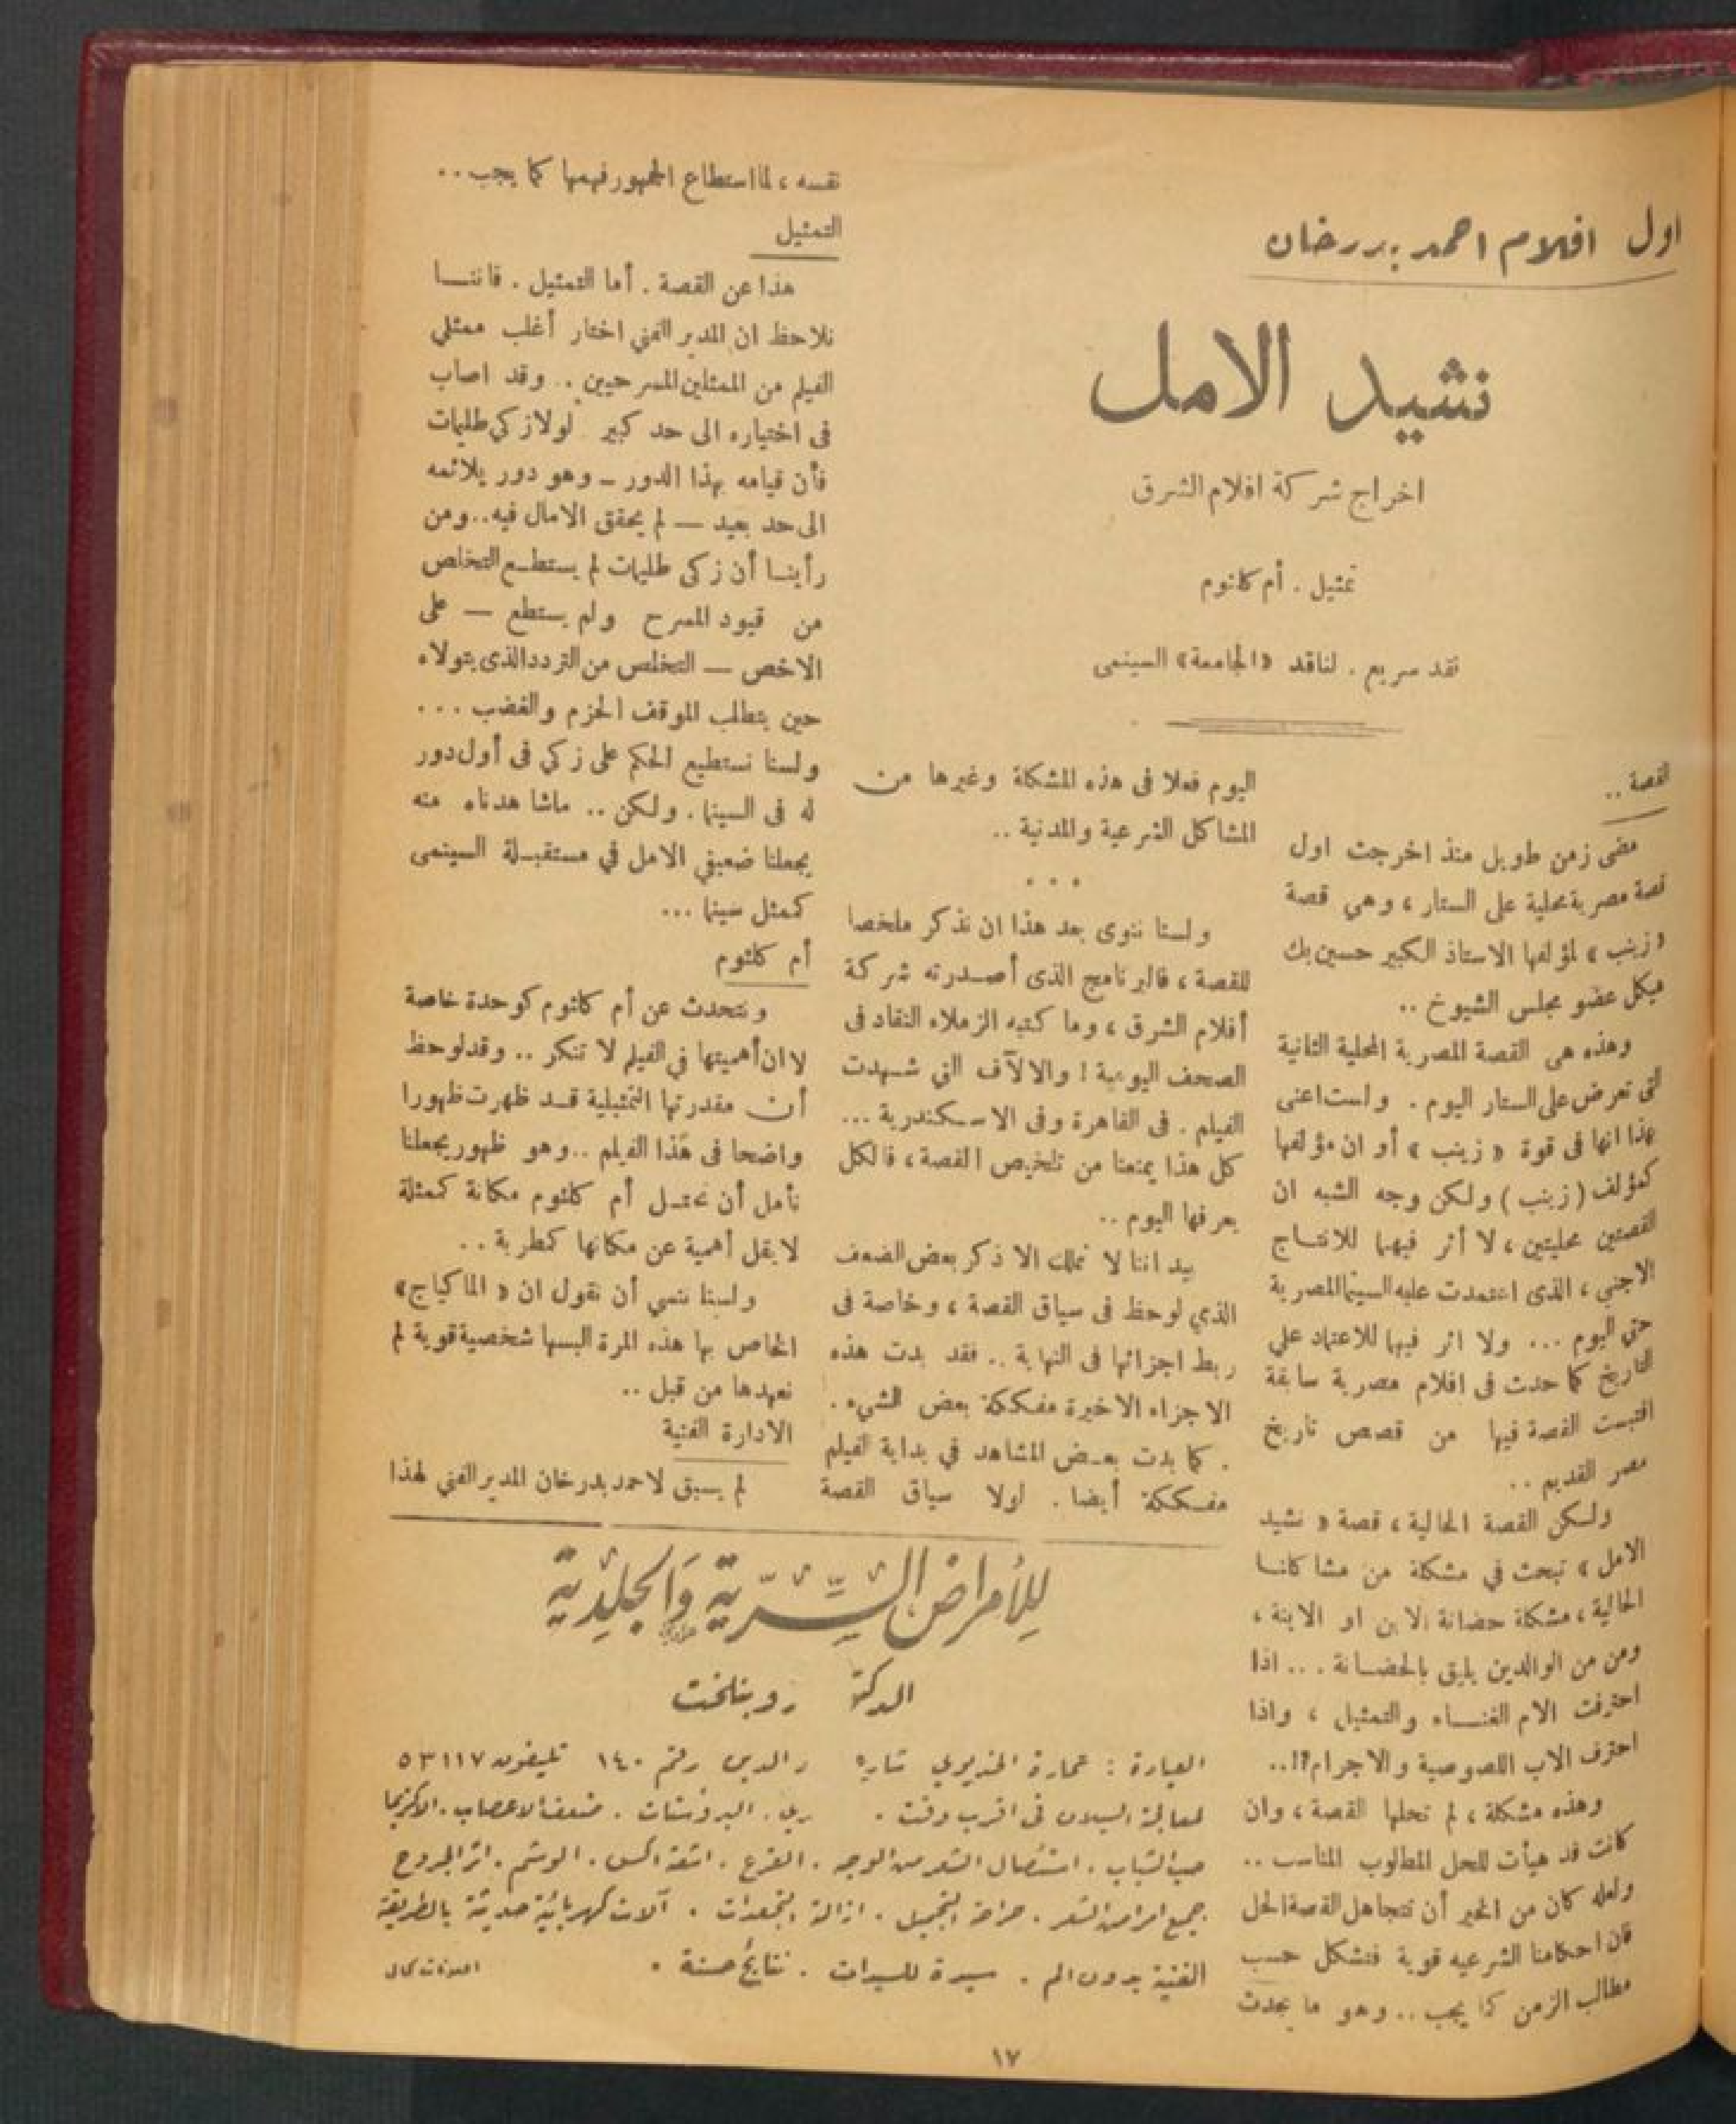 اول افلام احمد بدرخان
نشيد الامل
اخراج شركة افلام الشرق
تمثيل . أم كلثوم
نقد سريع . لناقد «الجامعة» السينمى
القصة ..
مضى زمن طويل منذ اخرجت اول
قصة مصرية محلية على الستار ، وهي قصة
«زينب» لمؤلفها الاستاذ الكبير حسين بك
هيكل عضو مجلس الشيوخ ..
وهذه هى القصة المصرية المحلية الثانية
التى تعرض على الستار اليوم . ولست اعنى
بهذا انها فى قوة «زينب» أو ان مؤلفها
كمؤلف (زينب) ولكن وجه الشبه ان
القصتين محليتين ، لا أثر فيهما للانتاج
الاجنبي ، الذى اعتمدت عليه السينما المصرية
حتى اليوم ... ولا اثر فيها للاعتماد علي
التاريخ كما حدث فى افلام مصرية سابقة
اقتبست القصة فيها من قصص تاريخ
مصر القديم ..
ولكن القصة الحالية ، قصة «نشيد
الامل» تبحث في مشكلة من مشاكلنا
الحالية ، مشكلة حضانة الابن او الابنة ،
ومن من الوالدين يليق بالحضانة ... اذا
احترفت الام الغناء والتمثيل ، واذا
احترف الاب اللصوصية والاجرام؟!..
وهذه مشكلة ، لم تحلها القصة ، وان
كانت قد هيأت للحل المطلوب المناسب ..
ولعله كان من الخير أن تتجاهل القصة الحل
فان احكامنا الشرعيه قوية فتشكل حسب
مطالب الزمن كما يجب .. وهو ما يحدث
اليوم فعلا فى هذه المشكلة وغيرها من
المشاكل الشرعية والمدنية ..
• • •
ولسنا ننوى بعد هذا ان نذكر ملخصا
للقصة ، فالبرنامج الذى أصدرته شركة
أفلام الشرق ، وما كتبه الزملاء النقاد فى
الصحف اليومية ! والالآف التي شهدت
الفيلم . فى القاهرة وفى الاسكندرية ...
كل هذا يمنعنا من تلخيص القصة ، فالكل
يعرفها اليوم ..
بيد اننا لا نملك الا ذكر بعض الضعف
الذي لوحظ فى سياق القصة ، وخاصة فى
ربط اجزائها فى النهاية .. فقد بدت هذه
الاجزاء الاخيرة مفككة بعض الشيء .
. كما بدت بعض المشاهد في بداية الفيلم
مفككة أيضا . لولا سياق القصة
نفسه ، لما استطاع الجمهور فهمها كما يجب ..
التمثيل
هذا عن القصة . أما التمثيل . فاننا
نلاحظ ان المدير الفني اختار أغلب ممثلي
الفيلم من الممثلين المسرحيين .. وقد اصاب
فى اختياره الى حد كبير لولا زكي طليمات
فأن قيامه بهذا الدور – وهو دور يلائمه
الى حد بعيد – لم يحقق الامال فيه .. ومن
رأينا أن زكى طليمات لم يستطع التخلص
من قيود المسرح ولم يستطع – على
الاخص – التخلص من التردد الذى يتولاه
حين يتطلب الموقف الحزم والغضب ...
ولسنا نستطيع الحكم على زكي فى أول دور
له فى السينما . ولكن .. ماشاهدناه منه
يجعلنا ضعيفي الامل في مستقبلة السينمى
كممثل سينما ...
أم كلثوم
ونتحدث عن أم كلثوم كوحدة خاصة
لا ان أهميتها في الفيلم لا تنكر .. وقد لوحظ
أن مقدرتها التمثيلية قد ظهرت ظهورا
واضحا فى هذا الفيلم .. وهو ظهور يجعلنا
نأمل أن تحتل أم كلثوم مكانة كممثلة
لا يقل أهمية عن مكانها كمطربة ..
ولسنا ننسي أن نقول ان «الماكياج»
الخاص بها هذه المرة البسها شخصية قوية لم
نعهدها من قبل ..
الادارة الفنية
لم يسبق لاحمد بدرخان المدير الفني لهذا
للأمراض السرية والجلدية
الدكتور روبنلخت
العيادة : عمارة الخديوي شارع الدين رقم ١٤٠ تليفون ٥٣١١٧
لمعالجة السيلان فى اقرب وقت . البروستات . ضعف الاعصاب . الاكزيما
حب الشباب . استئصال الشعر من الوجه . القرع . اشعة اكس . الوشم . اثر الجروح
جميع امراض الشعر . جراحة التجميل . ازالة التجعدات . آلات كهربائية حديثة بالطريقة
الفنية بدون الم . سيدة للسيدات . نتائج حسنة .
١٧